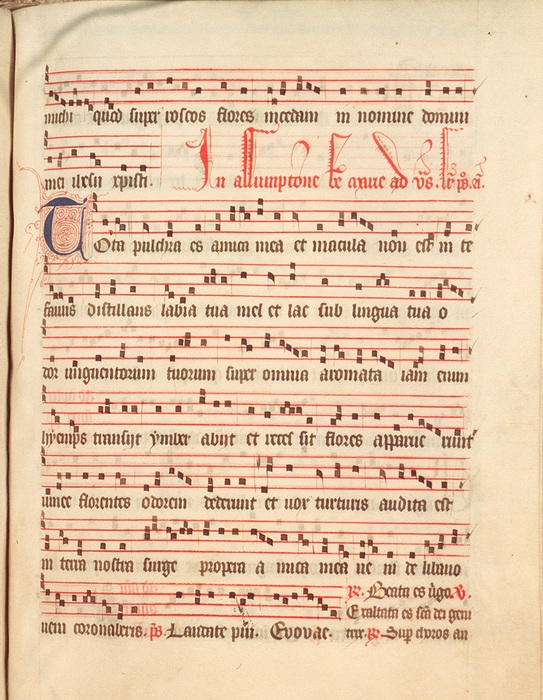 michi quod super roseos flores incedam in nomine domini
mei ihesu xpristi. In assumptione be marie ad vs.
Tota pulchra es amica mea et macula non est in te
fauus distillans labia tua mel et lac sub lingua tua o
dor unguentorum tuorum super omnia aromata iam enim
hyemps transijt ymber abijt et reces sit flores apparue runt
uinee florentes odorem dederunt et uox turturis audita est
in terra nostra surge propera a mica mea ue ni de libano
ueni coronaberis. ps. Laudate pui. Evovae.
R. Beata es v̾go. V.
Exaltata es sca dei geni
trix. R. Sup choros an